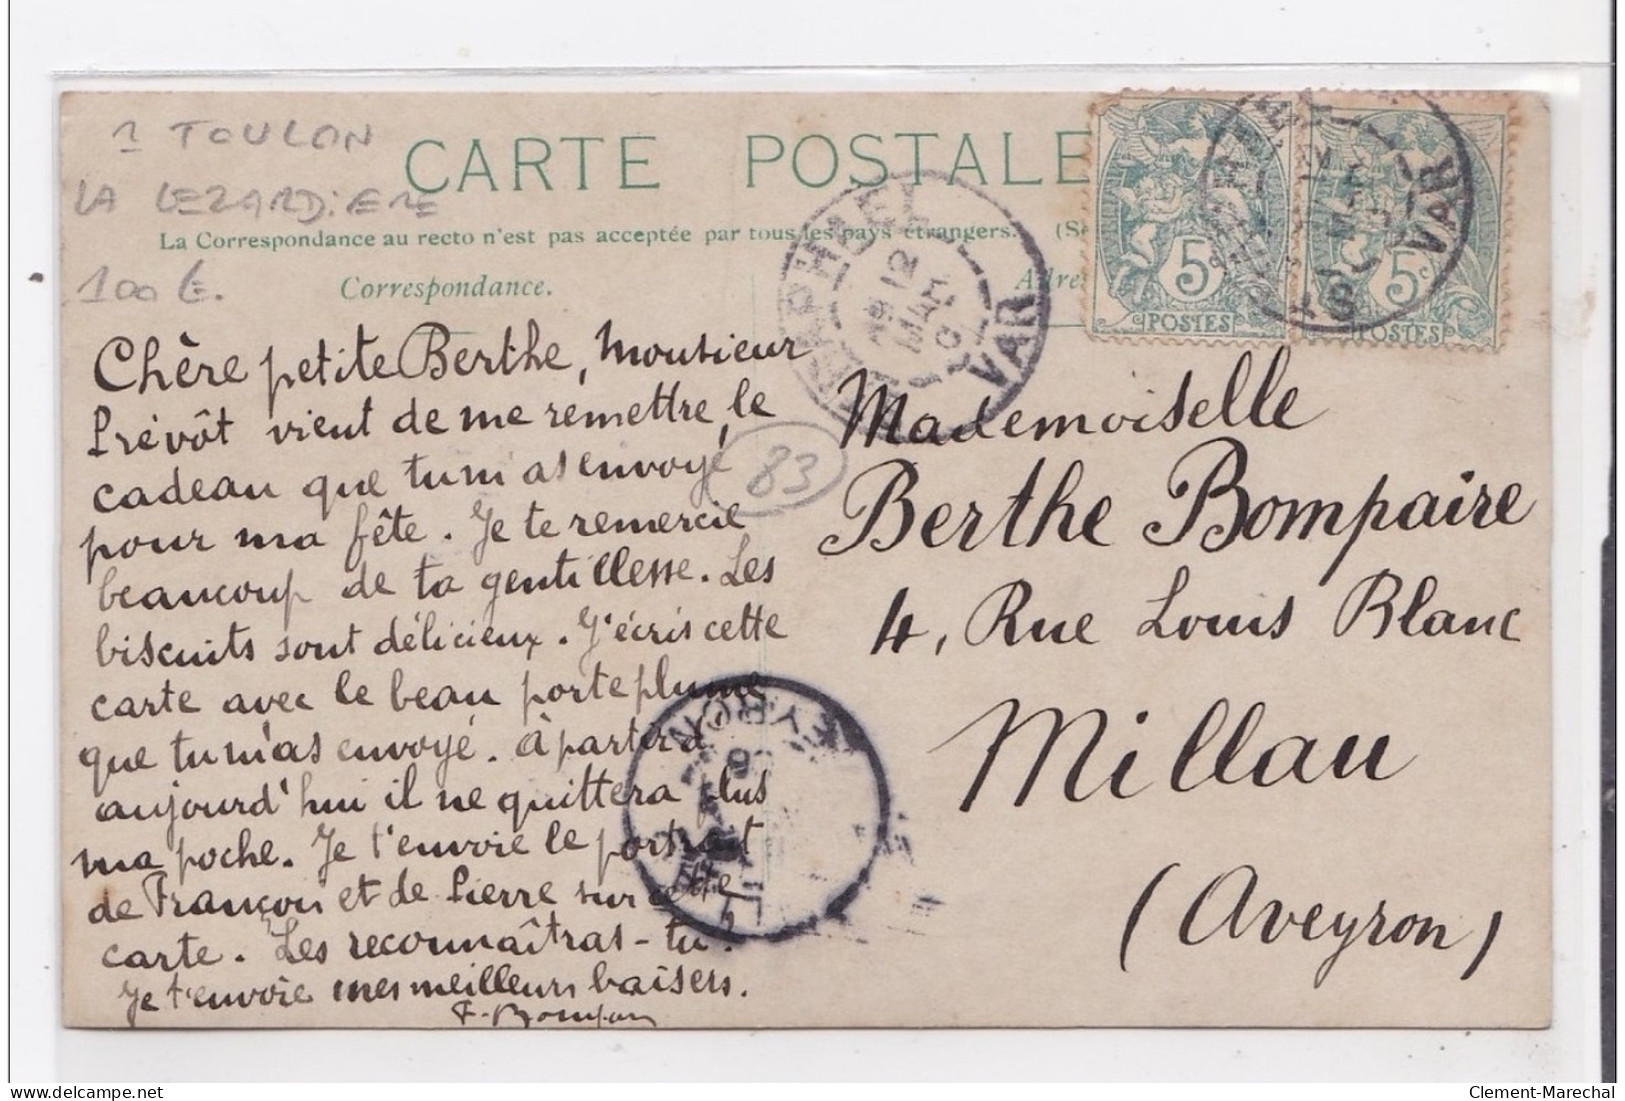 1 TOULON
LA LEZARDIERE
100 €.
CARTE POSTALE
La Correspondance au recto n'est pas acceptée par tous les pays étrangers. (Se
Correspondance.
Adre
5c
POSTES
5c
POSTES
12
MARS
VAR
VAR
Chère petite Berthe, Monsieur
Prévôt vient de me remettre, le
cadeau que tu m'as envoyé
pour ma fête. Je te remercie
beaucoup de ta gentillesse. Les
biscuits sont délicieux. J'écris cette
carte avec le beau porteplume
que tu m'as envoyé. à partir d'
aujourd'hui il ne quittera plus
ma poche. Je t'envoie le portrait
de Françon et de Pierre sur cette
carte. Les reconnaîtras-tu?
Je t'envoie mes meilleurs baisers.
83
Mademoiselle
Berthe Bompaire
4, Rue Louis Blanc
Millau
(Aveyron)
Clement-Marechal